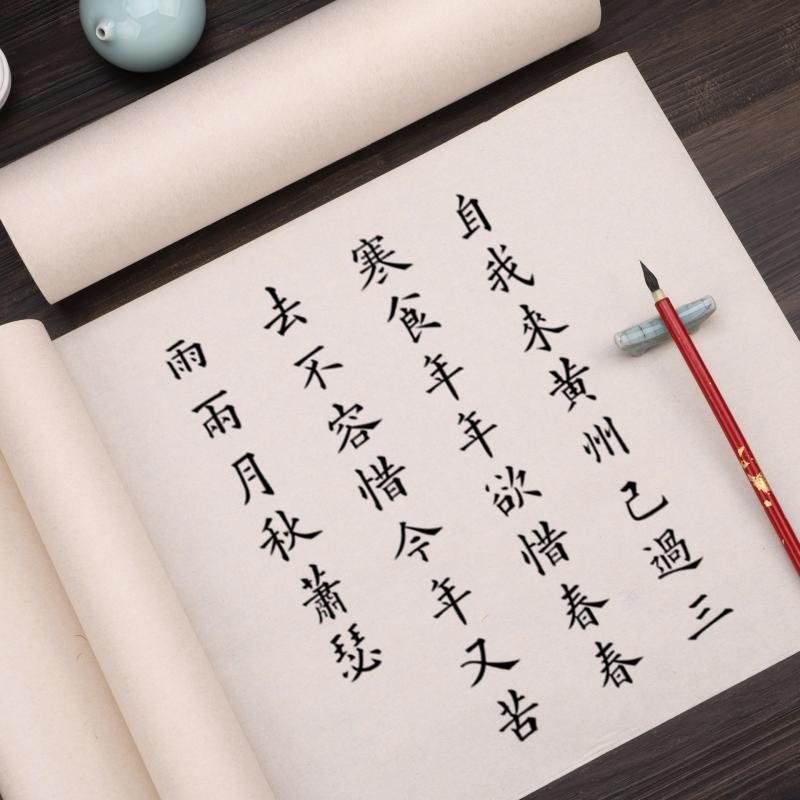 自我來黃州已過三
寒食年年欲惜春春
去不容惜今年又苦
雨兩月秋蕭瑟